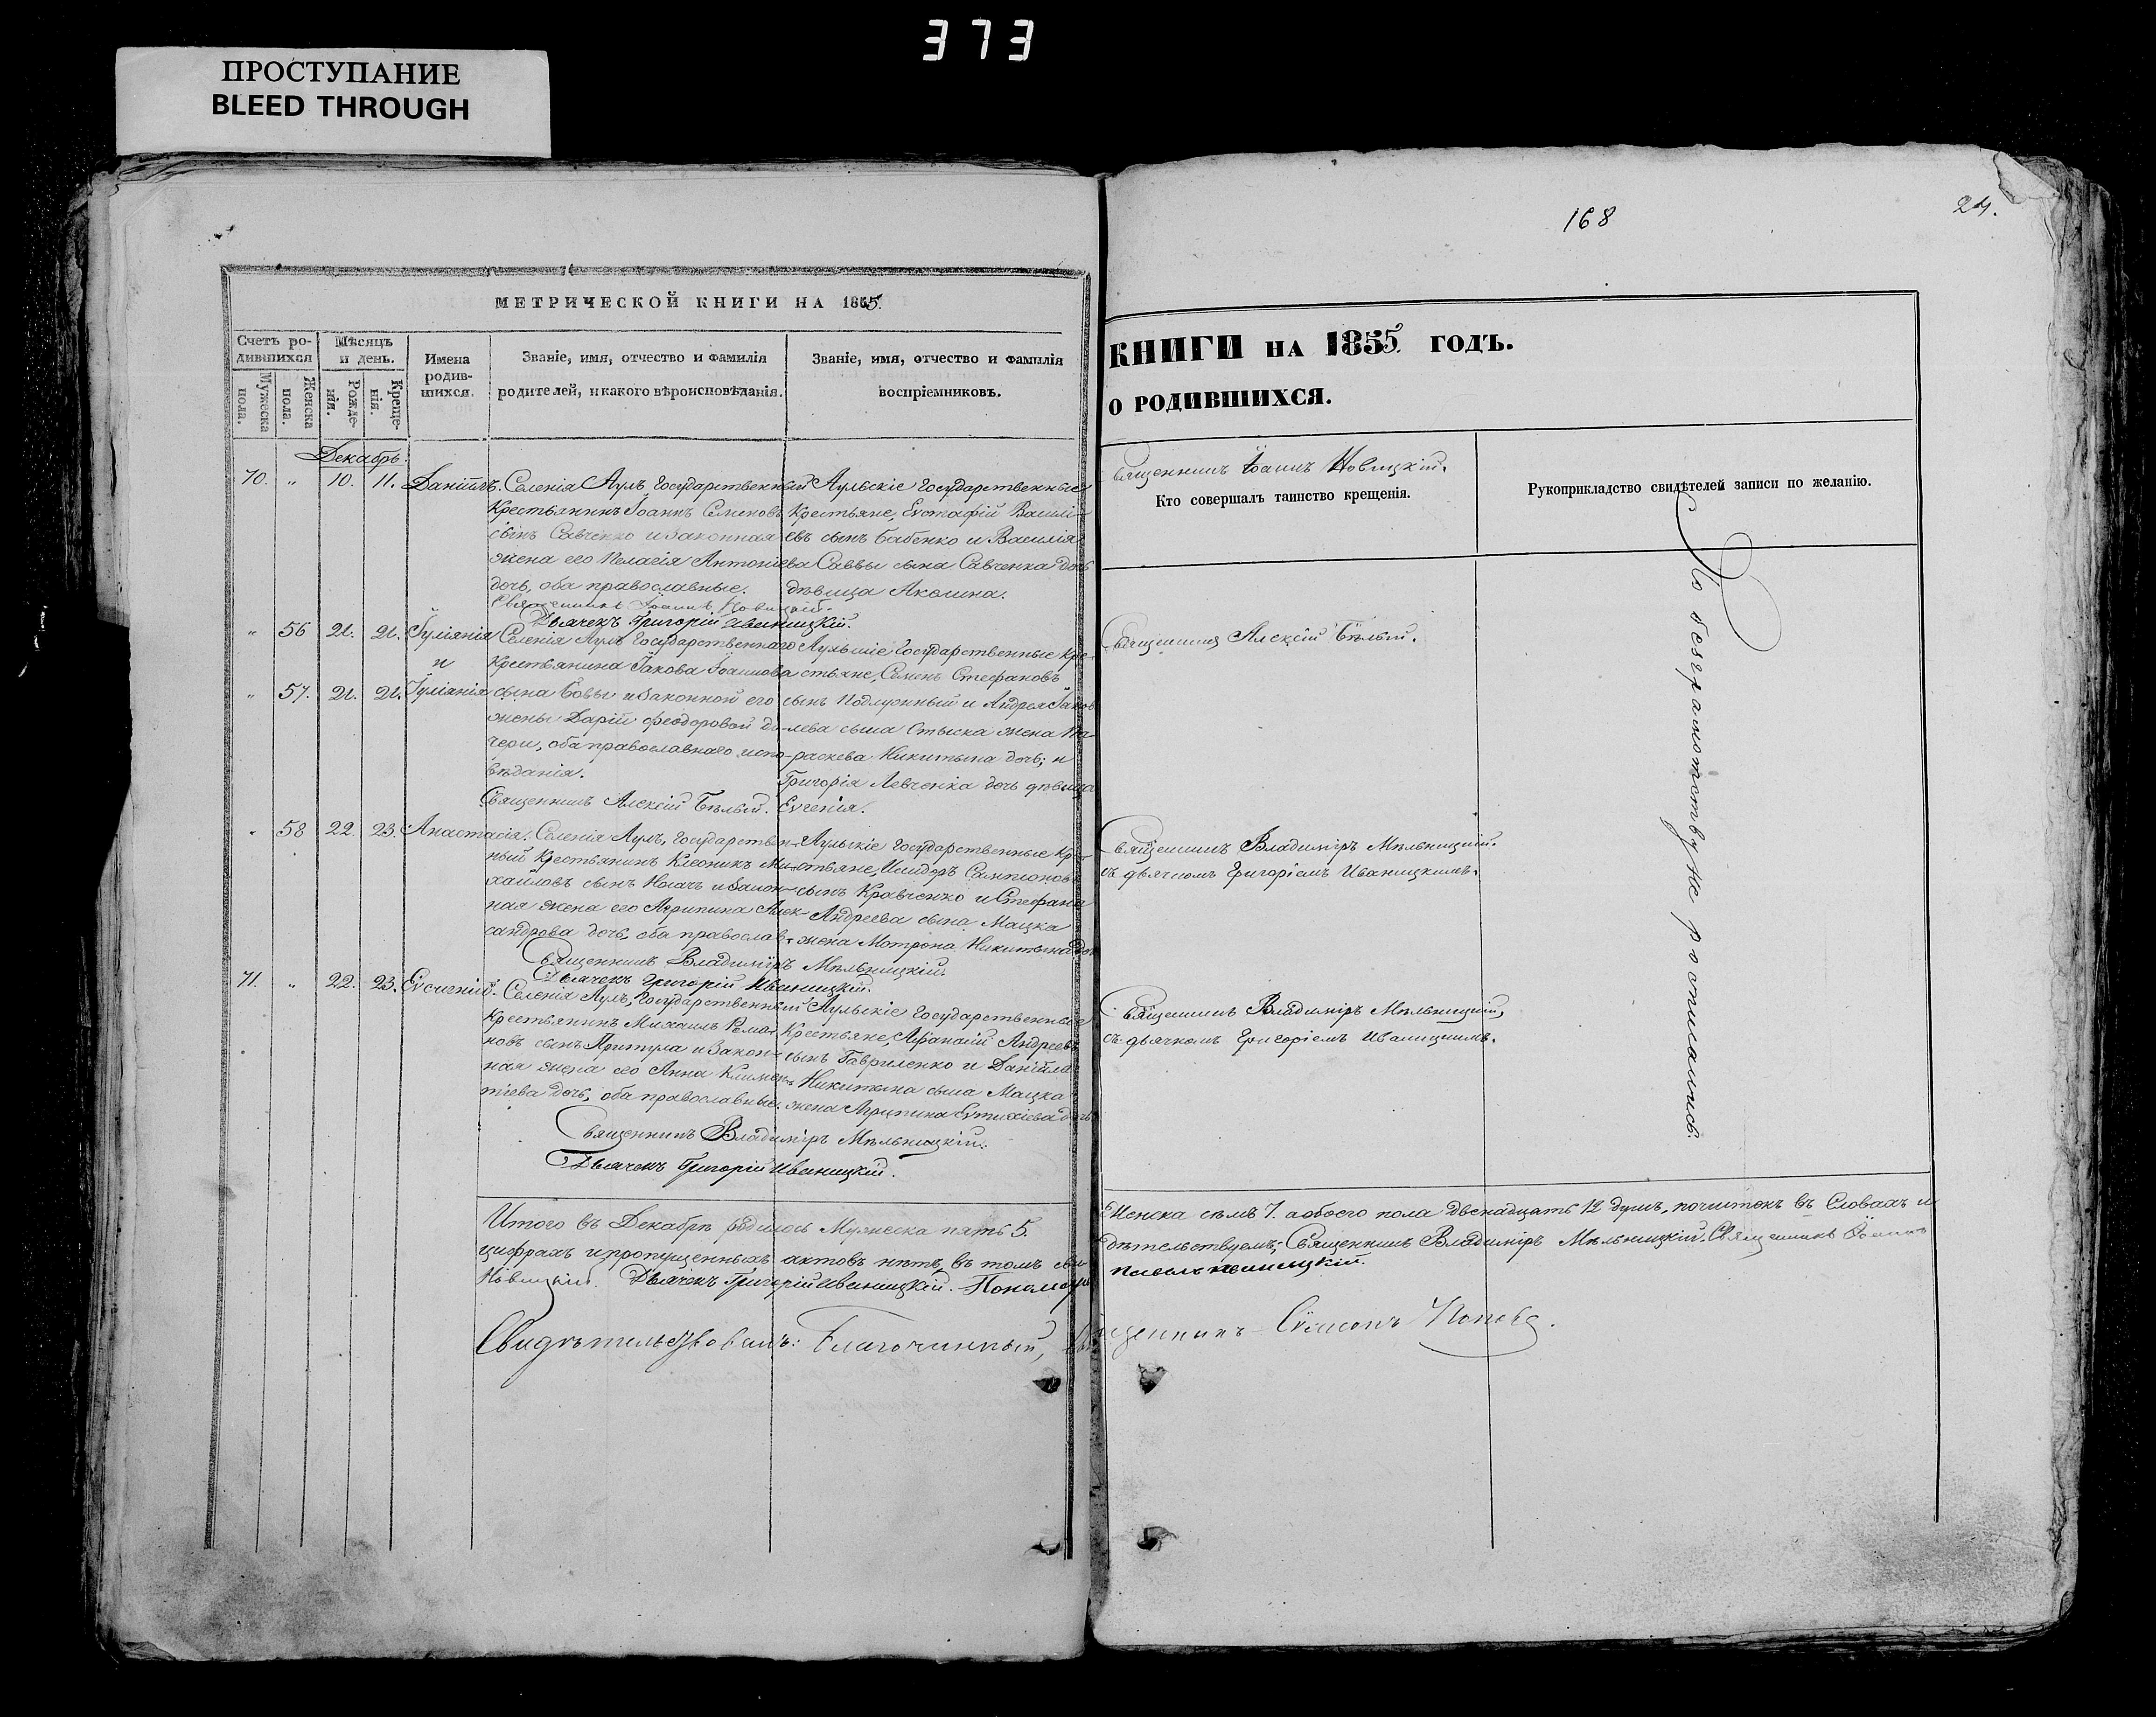 373
ПРОСТУПАНИЕ
BLEED THROUGH
168
24.
МЕТРИЧЕСКОЙ КНИГИ НА 1855.
Счетъ ро-
дившихся
Мужеска пола.
Женска пола.
Мѣсяцъ
и день.
Рожде-
нія.
Креще-
нія.
Имена
родив-
шихся.
Званіе, имя, отчество и фамилія
родителей, и какого вѣроисповѣданія.
Званіе, имя, отчество и фамилія
воспріемниковъ.
Декабрь.
70. „ 10. 11. Даніилъ. Селенія Аулъ Государственный
Крестьянинъ Іоаннъ Семеновъ
сынъ Савченко и законная
жена его Пелагія Антоніева
дочь, оба православные.
Священникъ Іоаннъ Новицкій.
Дьячекъ Григорій Иваницкій.
Аульскіе Государственные
Крестьяне, Евстафій Василі-
евъ сынъ Бабенко и Василія
Саввы сына Савченка дочь
дѣвица Акилина.
„ 56 21. 21. Іуліанія
и
„ 57. 21. 21. Іуліанія
Селенія Аулъ Государственнаго
Крестьянина Іакова Іоаннова
сына Бовы и законной его
жены Даріи Феодоровой до-
чери, оба православнаго испо-
вѣданія.
Священникъ Алексій Бѣлый.
Аульскіе Государственные Кре-
стьяне, Семенъ Стефановъ
сынъ Подлужный и Андрея Іаков-
лева сына жена Па-
раскева Никитина дочь; и
Григорія Левченка дочь дѣвица
Евгенія.
„ 58 22. 23. Анастасія. Селенія Аулъ, Государствен-
ный Крестьянинъ Клеоникъ Ми-
хайловъ сынъ Носачъ и закон-
ная жена его Агрипина Алек-
сандрова дочь, оба православ.
Священникъ Владиміръ Мѣльницкій.
Дьячекъ Григорій Иваницкій.
Аульскіе Государственные Кре-
стьяне, Исидоръ Сампсоновъ
сынъ Кравченко и Стефана
Андреева сына Мацка
жена Мотрона Никитина дочь
71. „ 22. 23. Евсигній. Селенія Аулъ, Государственный
Крестьянинъ Михаилъ Рома-
новъ сынъ Притула и закон-
ная жена его Анна Климен-
тіева дочь, оба православные.
Священникъ Владиміръ Мѣльницкій.
Дьячекъ Григорій Иваницкій.
Аульскіе Государственные
Крестьяне, Афанасій Андреевъ
сынъ Гавриленко и Даніила
Никитина сына Мацка
жена Агрипина Евтихіева дочь
КНИГИ НА 1855. ГОДЪ.
О РОДИВШИХСЯ.
Священникъ Іоаннъ Новицкій.
Кто совершалъ таинство крещенія.
Рукоприкладство свидѣтелей записи по желанію.
Священникъ Алексій Бѣлый.
Священникъ Владиміръ Мѣльницкій.
съ дьячкомъ Григоріемъ Иваницкимъ.
Священникъ Владиміръ Мѣльницкій,
съ дьячкомъ Григоріемъ Иваницкимъ.
По безграмотству не росписались.
Итого въ Декабрѣ родилось Мужеска пять 5. Женска семь 7. а обоего пола двенадцать 12 душъ, почистокъ въ словахъ и
цифрахъ и пропущенныхъ актовъ нѣтъ, въ томъ сви-дѣтельствуемъ; Священникъ Владиміръ Мѣльницкій. Священникъ Іоаннъ
Новицкій. Дьячекъ Григорій Иваницкій. Пономарь Иваницкій.
Свидѣтельствовалъ: Благочинный, Священникъ Сѵмеонъ Поповъ.